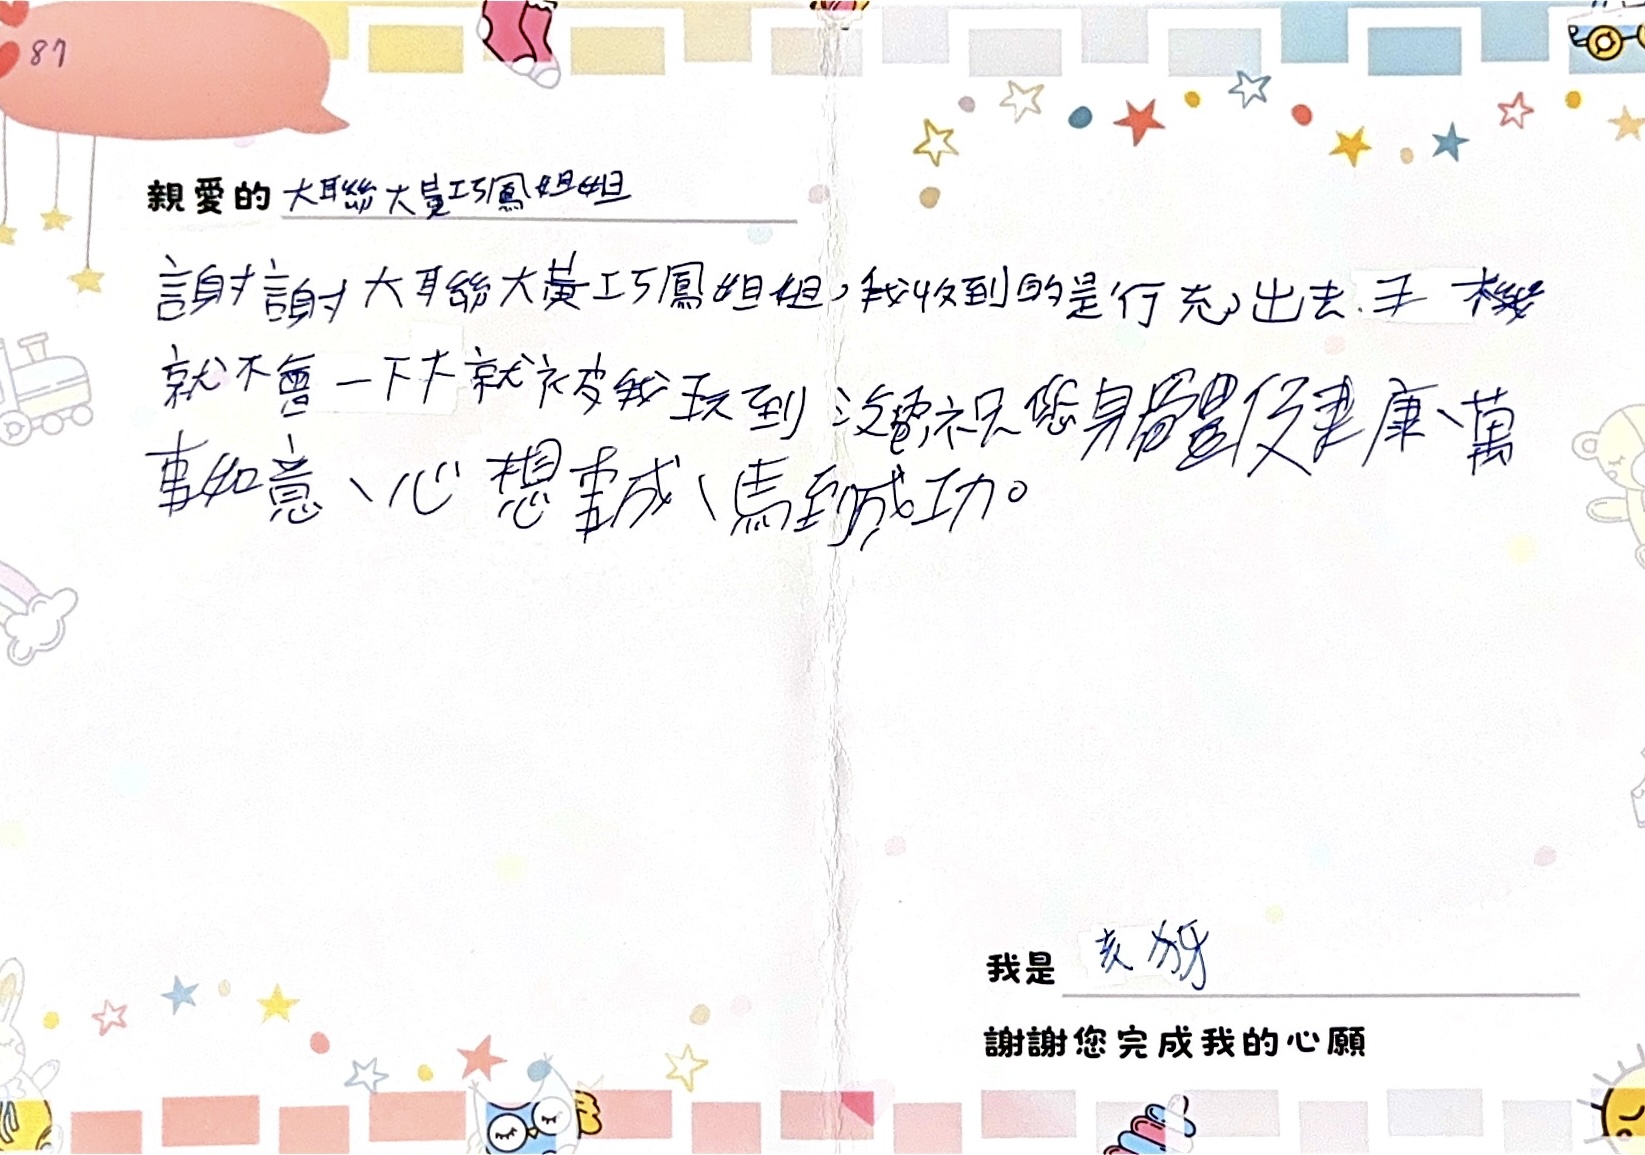 87
親愛的 大聯大黃巧鳳姐姐
謝謝大聯大黃巧鳳姐姐，我收到的是行充，出去，手機
就不會一下下就被我玩到沒電，祝您身體健康、萬
事如意、心想事成、馬到成功。
我是
謝謝您完成我的心願